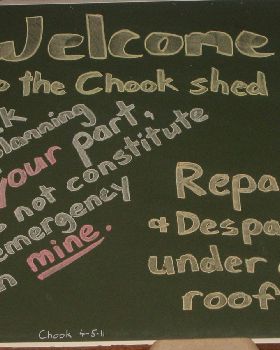 Welcome
the Chook shed
planning
your part,
not constitute
emergency
mine.
Repa
& Despa
under
roof
Chook 4-5-11